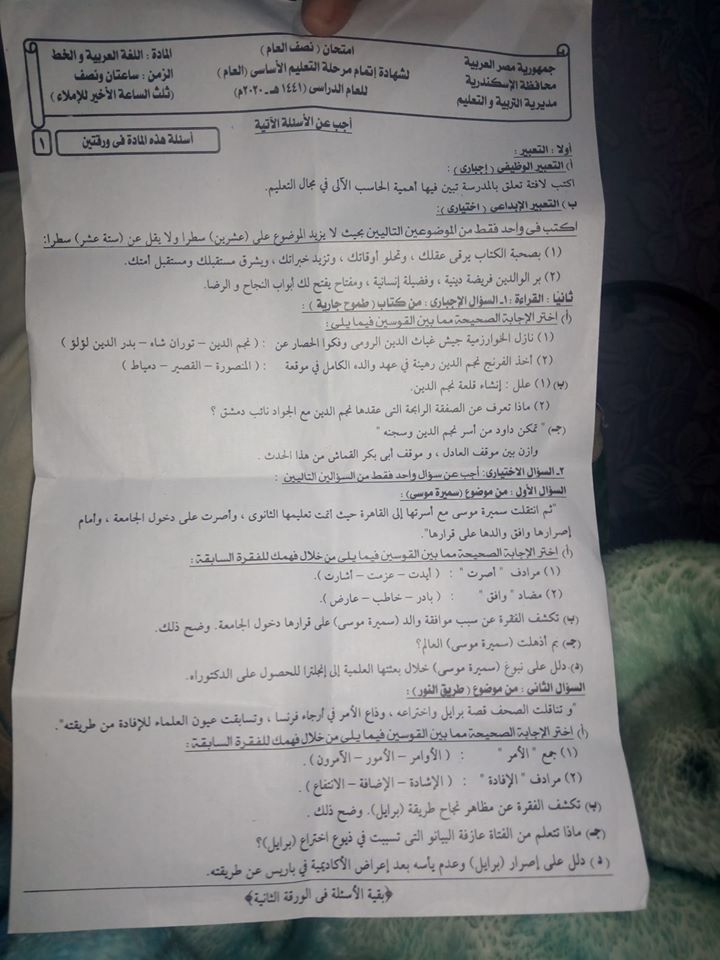 جمهورية مصر العربية
محافظة الإسكندرية
مديرية التربية والتعليم
امتحان ( نصف العام )
لشهادة إتمام مرحلة التعليم الأساسى (العام )
للعام الدراسى (١٤٤١ هـ - ٢٠٢٠ م)
المادة : اللغة العربية و الخط
الزمن : ساعتان ونصف
(ثلث الساعة الأخير للإملاء )
أجب عن الأسئلة الآتية
أسئلة هذه المادة فى ورقتين
١
أولا : التعبير :
أ) التعبير الوظيفى ( إجبارى ) :
اكتب لافتة تعلق بالمدرسة تبين فيها أهمية الحاسب الآلى في مجال التعليم.
ب) التعبير الإبداعى ( اختيارى ) :
اكتب فى واحد فقط من الموضوعين التاليين بحيث لا يزيد الموضوع على (عشرين) سطرا ولا يقل عن (ستة عشر) سطرا:
(١) بصحبة الكتاب يرقى عقلك ، وتحلو أوقاتك ، وتزيد خبراتك ، ويشرق مستقبلك ومستقبل أمتك.
(٢) بر الوالدين فريضة دينية ، وفضيلة إنسانية ، ومفتاح يفتح لك أبواب النجاح و الرضا.
ثانيًا : القراءة : ١- السؤال الإجبارى : من كتاب ( طموح جارية ) :
(أ) اختر الإجابة الصحيحة مما بين القوسين فيما يلى :
(١) نازل الخوارزمية جيش غياث الدين الرومى وفكوا الحصار عن : ( نجم الدين – توران شاه – بدر الدين لؤلؤ )
(٢) أخذ الفرنج نجم الدين رهينة في عهد والده الكامل في موقعة : ( المنصورة – القصير – دمياط )
(ب) (١) علل : إنشاء قلعة نجم الدين.
(٢) ماذا تعرف عن الصفقة الرابحة التى عقدها نجم الدين مع الجواد نائب دمشق ؟
(جـ) " تمكن داود من أسر نجم الدين وسجنه "
وازن بين موقف العادل ، و موقف أبى بكر القماش من هذا الحدث .
٢- السؤال الاختيارى : أجب عن سؤال واحد فقط من السؤالين التاليين :
السؤال الأول : من موضوع (سميرة موسى) :
"ثم انتقلت سميرة موسى مع أسرتها إلى القاهرة حيث أتمت تعليمها الثانوى ، وأصرت على دخول الجامعة ، وأمام
إصرارها وافق والدها على قرارها".
(أ) اختر الإجابة الصحيحة مما بين القوسين فيما يلى من خلال فهمك للفقرة السابقة :
(١) مرادف " أصرت " : ( أيدت – عزمت – أشارت ).
(٢) مضاد " وافق " : ( بادر – خاطب – عارض ).
(ب) تكشف الفقرة عن سبب موافقة والد (سميرة موسى) على قرارها دخول الجامعة. وضح ذلك.
(جـ) بم أذهلت (سميرة موسى) العالم؟
(د) دلل على نبوغ (سميرة موسى) خلال بعثتها العلمية إلى إنجلترا للحصول على الدكتوراه.
السؤال الثانى : من موضوع (طريق النور) :
"و تناقلت الصحف قصة برايل واختراعه ، وذاع الأمر في أرجاء فرنسا ، وتسابقت عيون العلماء للإفادة من طريقته".
(أ) اختر الإجابة الصحيحة مما بين القوسين فيما يلى من خلال فهمك للفقرة السابقة :
(١) جمع " الأمر " : ( الأوامر – الأمور – الآمرون ) .
(٢) مرادف " الإفادة " : ( الإشادة – الإضافة – الانتفاع ).
(ب) تكشف الفقرة عن مظاهر نجاح طريقة (برايل). وضح ذلك .
(جـ) ماذا تتعلم من الفتاة عازفة البيانو التى تسببت في ذيوع اختراع (برايل)؟
(د) دلل على إصرار (برايل) وعدم يأسه بعد إعراض الأكاديمية في باريس عن طريقته.
﴿بقية الأسئلة فى الورقة الثانية﴾